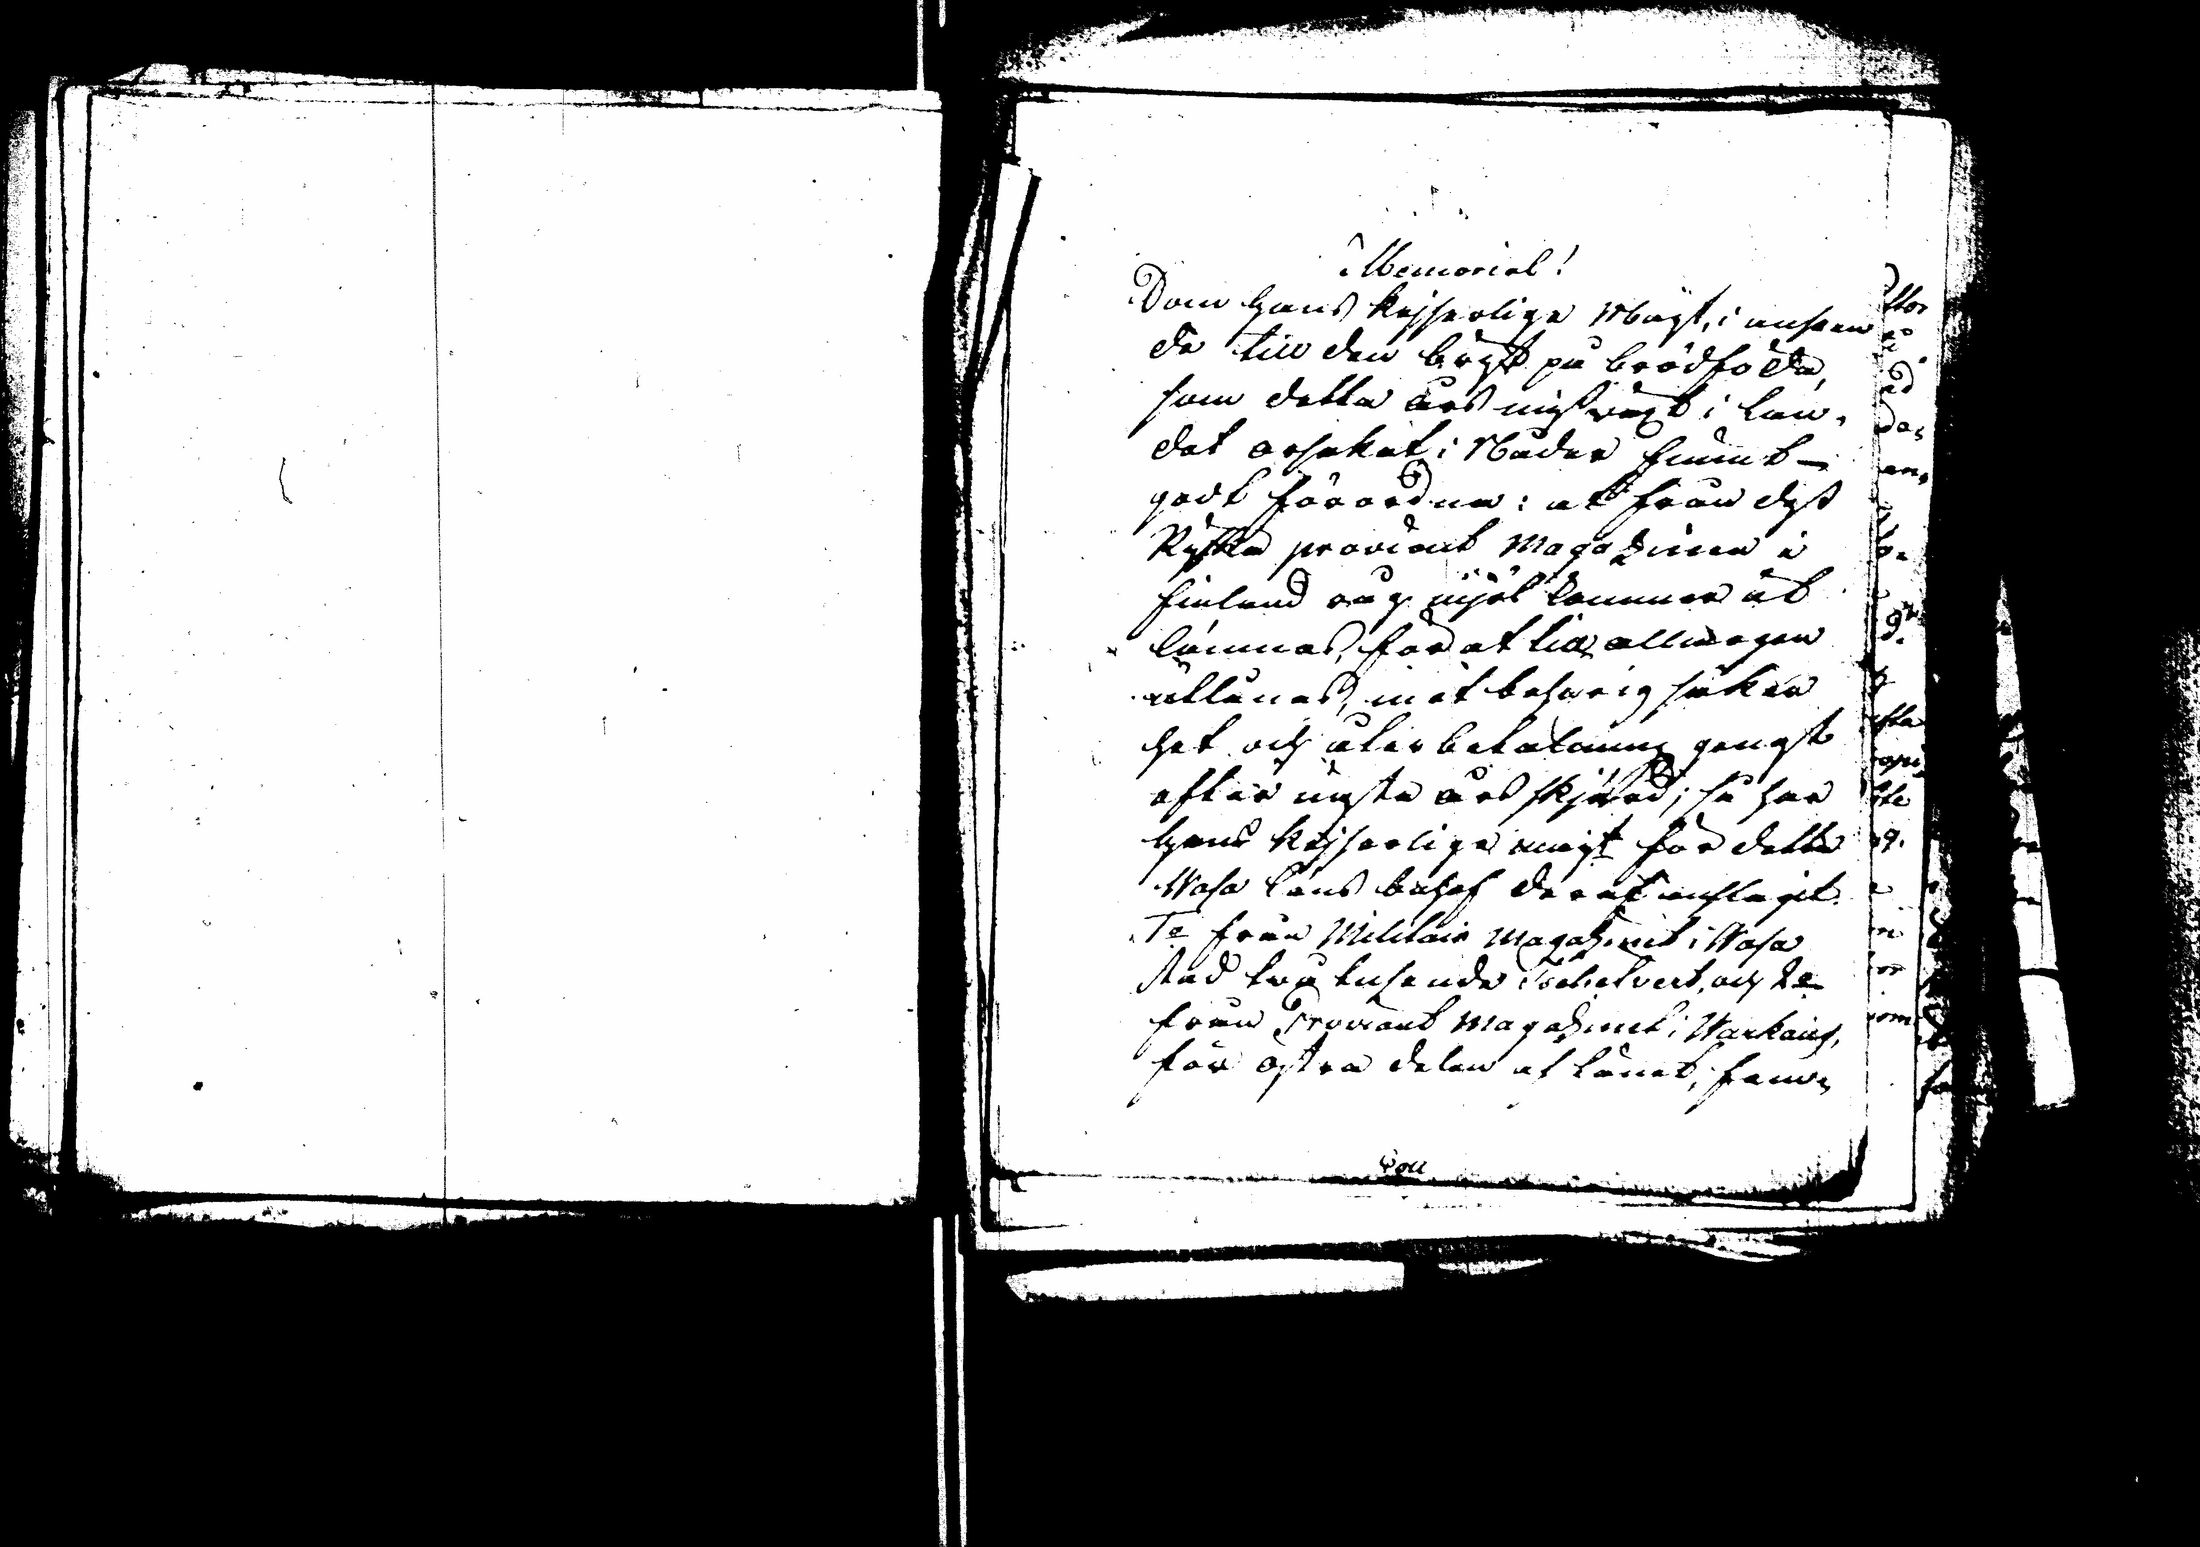 Memorial!
Som Hans Kejserlige Maÿt, i anseen
de till den brist på brödföda,
som detta års missväxt i lan-
det orsakat; i Nåder funnit
godt förordna: at från dess
Ryska proviant Magaziner i
Finland råg mjöl kommer at
lämnas, för at till allmogen
utlånas, mot behörig säker
het och återbetalning genast
efter nästa års skjörd; så har
Hans Kejserlige maÿt för detta
Wasa Läns behof dertil anslagit.
1o från Militair Magazinet i Wasa
stad två tusende Tschetvert, och 2o
från Proviant Magazinet i Warkaus,
för östra delen af Länet, femọ
Coll